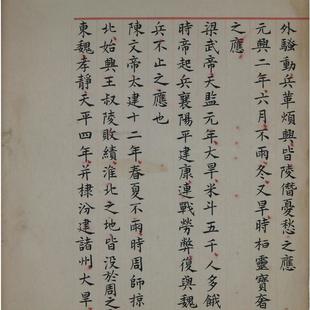 外騷動兵革煩興皆陵僭憂愁之應
元興二年六月不雨冬又旱時桓靈寶奢
之應
梁武帝天監元年大旱米斗五千人多餓
時帝起兵襄陽平建康連戰勞弊復與魏
兵不止之應也
陳文帝太建十二年春夏不雨時周師掠
北始興王叔陵敗績淮北之地皆沒於周之
東魏孝靜天平四年并棣汾建諸州大旱